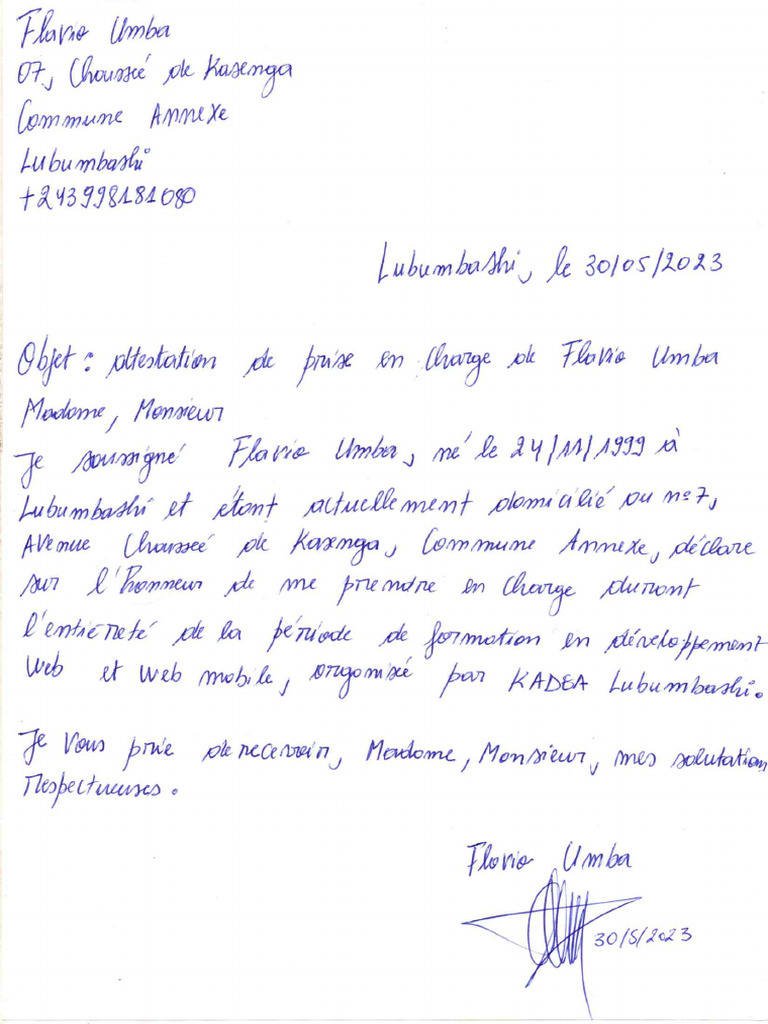 Flavio Umba
07, Chaussée de Kasenga
Commune Annexe
Lubumbashi
+243998181080
Lubumbashi, le 30/05/2023
Objet : attestation de prise en charge de Flavio Umba
Madame, Monsieur
Je soussigné Flavio Umba, né le 24/11/1999 à
Lubumbashi et étant actuellement domicilié au n°7,
Avenue Chaussée de Kasenga, Commune Annexe, déclare
sur l'honneur de me prendre en charge durant
l'entièreté de la période de formation en développement
web et web mobile, organisé par KADEA Lubumbashi.
Je vous prie de recevoir, Madame, Monsieur, mes salutations
Respectueuses.
Flavio Umba
30/5/2023